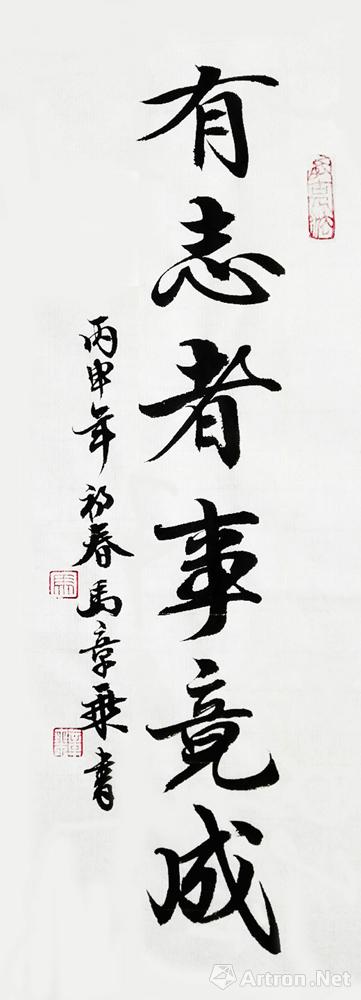 有志者事竟成
丙申年初春馬章乘書
Artron.Net